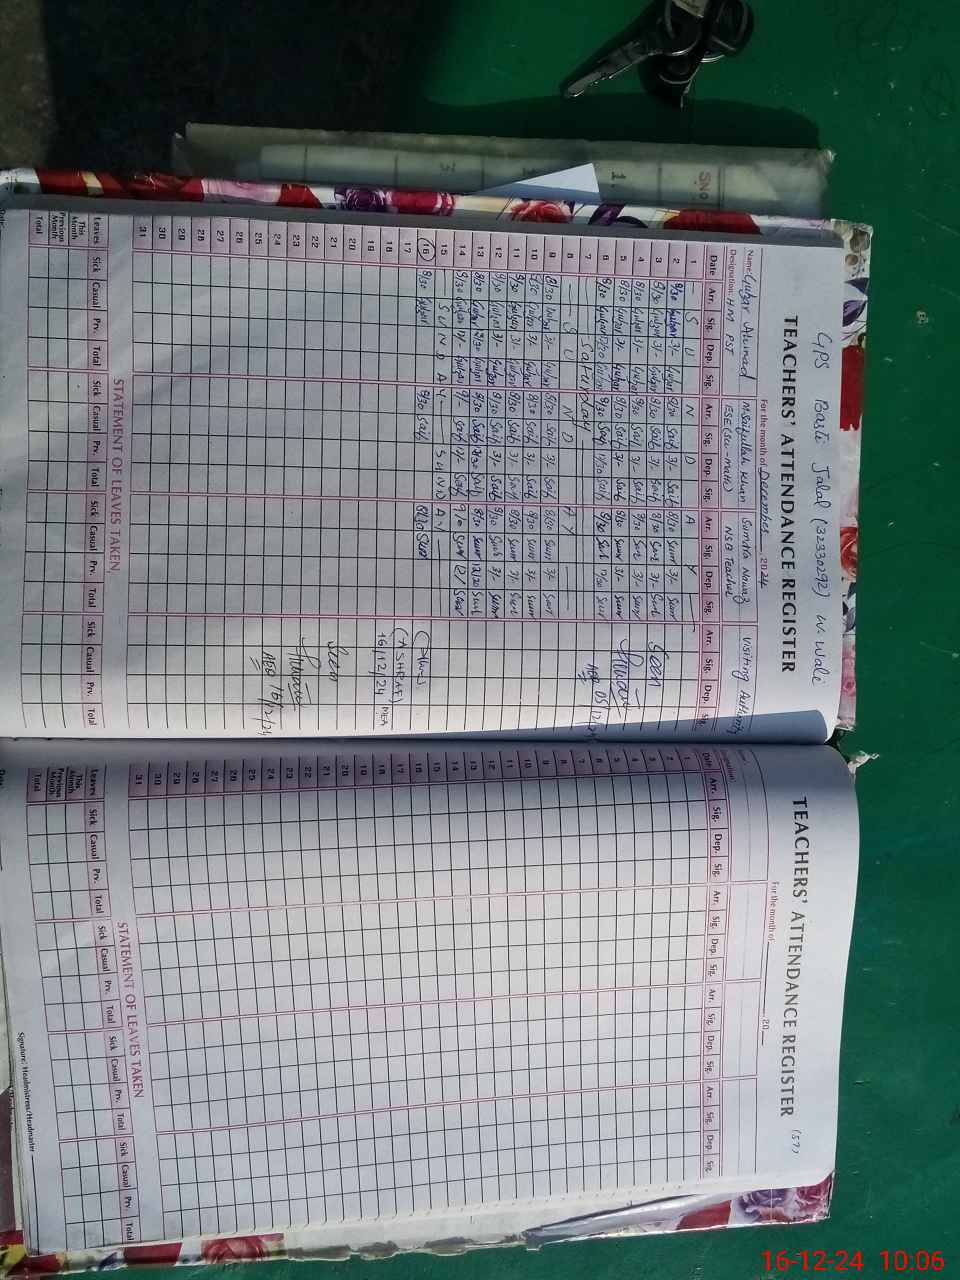 GPS Basti Jalal (32330292) W. Wali
TEACHERS' ATTENDANCE REGISTER
For the month of December 2024
Name: Gulzar Ahmad M. Saifullah Khan Sumera Nawaz Visiting Authority
Designation: H.M PST ESE (Sci-Math) NSB Teacher
Date Arr. Sig. Dep. Sig. Arr. Sig. Dep. Sig. Arr. Sig. Dep. Sig. Arr. Sig. Dep. Sig.
1 S U N D A Y
2 8/30 Gulzar 3/- Gulzar 8/30 Saif 3/- Saif 8/30 Sum 3/- Sum
3 8/30 Gulzar 3/- Gulzar 8/30 Saif 3/- Saif 8/30 Sum 3/- Sum
4 8/30 Gulzar 3/- Gulzar 8/30 Saif 3/- Saif 8/30 Sum 3/- Sum
5 8/30 Gulzar 3/- Gulzar 8/30 Saif 3/- Saif 8/30 Sum 3/- Sum
6 8/30 Gulzar 12/30 Gulzar 8/30 Saif 12/30 Saif 8/30 Sum 12/30 Sum
7 Saturday
8 S U N D A Y
9 8/30 Gulzar 3/- Gulzar 8/30 Saif 3/- Saif 8/30 Sum 3/- Sum
10 8/30 Gulzar 3/- Gulzar 8/30 Saif 3/- Saif 8/30 Sum 3/- Sum
11 8/30 Gulzar 3/- Gulzar 8/30 Saif 3/- Saif 8/30 Sum 3/- Sum
12 8/30 Gulzar 3/- Gulzar 8/30 Saif 3/- Saif 8/30 Sum 3/- Sum
13 8/30 Gulzar 12/30 Gulzar 8/30 Saif 12/30 Saif 8/30 Sum 12/30 Sum
14 Gulzar Gulzar Saif Saif Sum Sum
15 S U N D A Y S U N D A Y
16 8/30 Gulzar 8/30 Saif 8/30 Sum
17
18
19
20
21
22
23
24
25
26
27
28
29
30
31
Seen
AEO 05/12/24
(ASHRAF)
16/12/24 MEA
Seen
AEO 16/12/24
STATEMENT OF LEAVES TAKEN
Leaves Sick Casual Prv. Total Sick Casual Prv. Total Sick Casual Prv. Total Sick Casual Prv. Total
This Month
Previous Month
Total
TEACHERS' ATTENDANCE REGISTER (57)
For the month of 20
Date Arr. Sig. Dep. Sig. Arr. Sig. Dep. Sig. Arr. Sig. Dep. Sig. Arr. Sig. Dep. Sig.
1
2
3
4
5
6
7
8
9
10
11
12
13
14
15
16
17
18
19
20
21
22
23
24
25
26
27
28
29
30
31
STATEMENT OF LEAVES TAKEN
Leaves Sick Casual Prv. Total Sick Casual Prv. Total Sick Casual Prv. Total Sick Casual Prv. Total
This Month
Previous Month
Total
Signature: Headmistress/Headmaster
SNO
1.
3
16-12-24 10:06